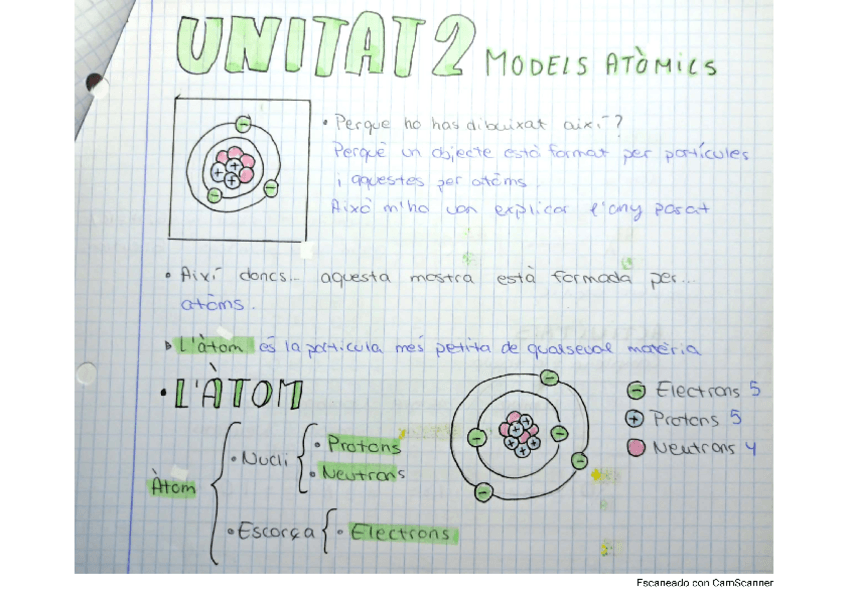 UNITAT 2 MODELS ATÒMICS
• Perque ho has dibuixat així?
Perquè un objecte està format per partícules
i aquestes per atòms.
Això m'ho van explicar l'any pasat
• Així doncs... aquesta mostra està formada per...
atòms.
L'àtom és la partícula més petita de qualsevol matèria
• L'ÀTOM
Electrons 5
Protons 5
Neutrons 4
Àtom
• Nucli
• Protons
• Neutrons
• Escorça
• Electrons
Escaneado con CamScanner